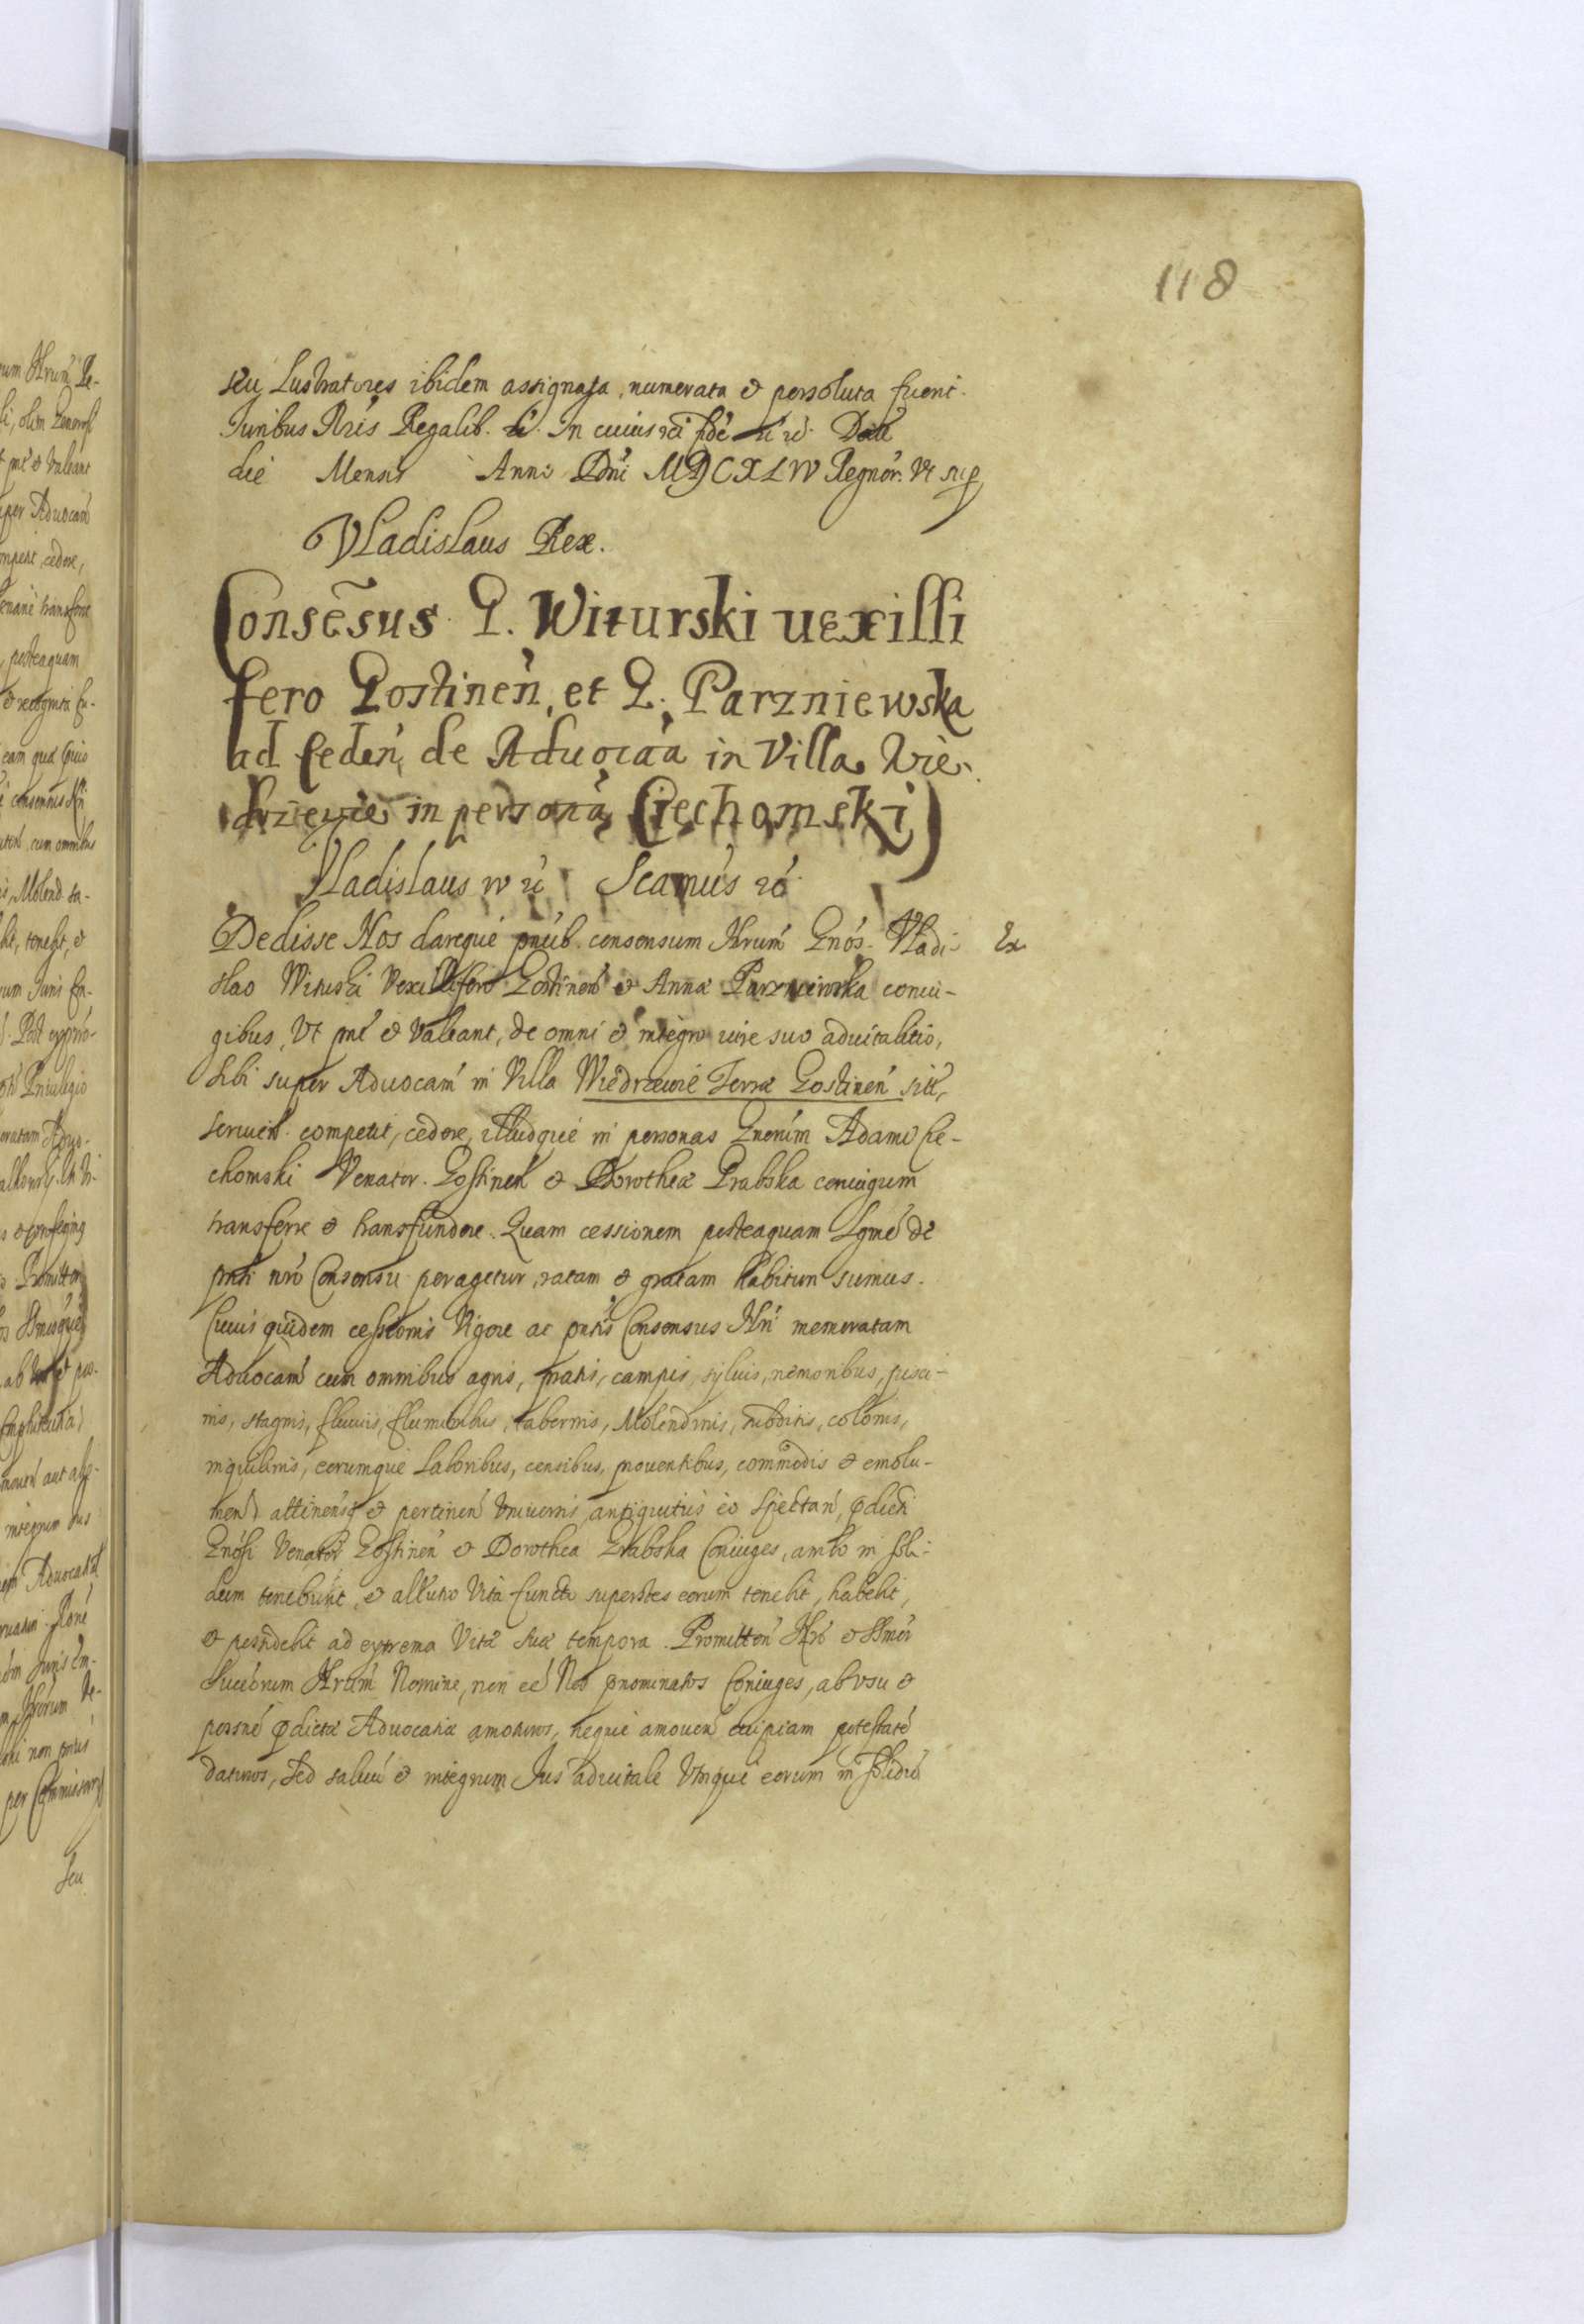 118
seu Lustratores ibidem assignata, numerata et persoluta fuerit.
Iuribus Nris Regalib. &. In cuius rei fidē
die Mensis Anno Dni MDCXLIV Regnor. Vt sup
Vladislaus Rex.
Consēsus G. Witurski uexilli
fero Gostinen, et G. Parzniewska
ad ceden de Aduocaa in Villa Wie-
drzewie in persona Ciechomski)
Vladislaus
Dedisse Nos dareque pntib. consensum Nrum Gnos. Vladi-
slao Wituski Vexillifero Gostinen et Annæ Parzniewska coniu-
gibus, Vt pnt et Valeant, de omni et integro iure suo aduitalitio,
sibi super Aduocam in Villa Wiedrzewie Terræ Gostinen sit,
seruien. competit, cedere, illudque in personas Gnerum Adami Cie-
chomski Venator. Gostinen et Dorotheæ Grabska coniugum
transferre et transfundere. Quam cessionem posteaquam Lgme de
pnti nro Consensu peragetur, ratam et gratam habituri sumus.
Cuius quidem cessionis Vigore ac pntis Consensus Nri memoratam
Aduocam cum omnibus agris, pratis, campis, syluis, nemoribus, pisci-
nis, stagnis, fluuiis, fluminibus, tabernis, Molendinis, subditis, colonis,
inquilinis, eorumque Laboribus, censibus, prouentibus, commodis et emolu-
men attinensq et pertinen Vniuersis antiquitus eo spectan, pdicti
Gnosi Venator Gostinen et Dorothea Grabska Coniuges, ambo in soli-
dum tenebunt, et altero Vita functo superstes eorum tenebit, habebit,
et possidebit ad extrema Vitæ suæ tempora. Promitten Nro et Smor
Succorum Nrum Nomine, non eē Nos pnominatos Coniuges, ab vsu et
possne pdictæ Aduocatiæ amoturos, neque amouen cuipiam potestatē
daturos, sed saluū et integrum Ius aduitale Vtrique eorum in solidū